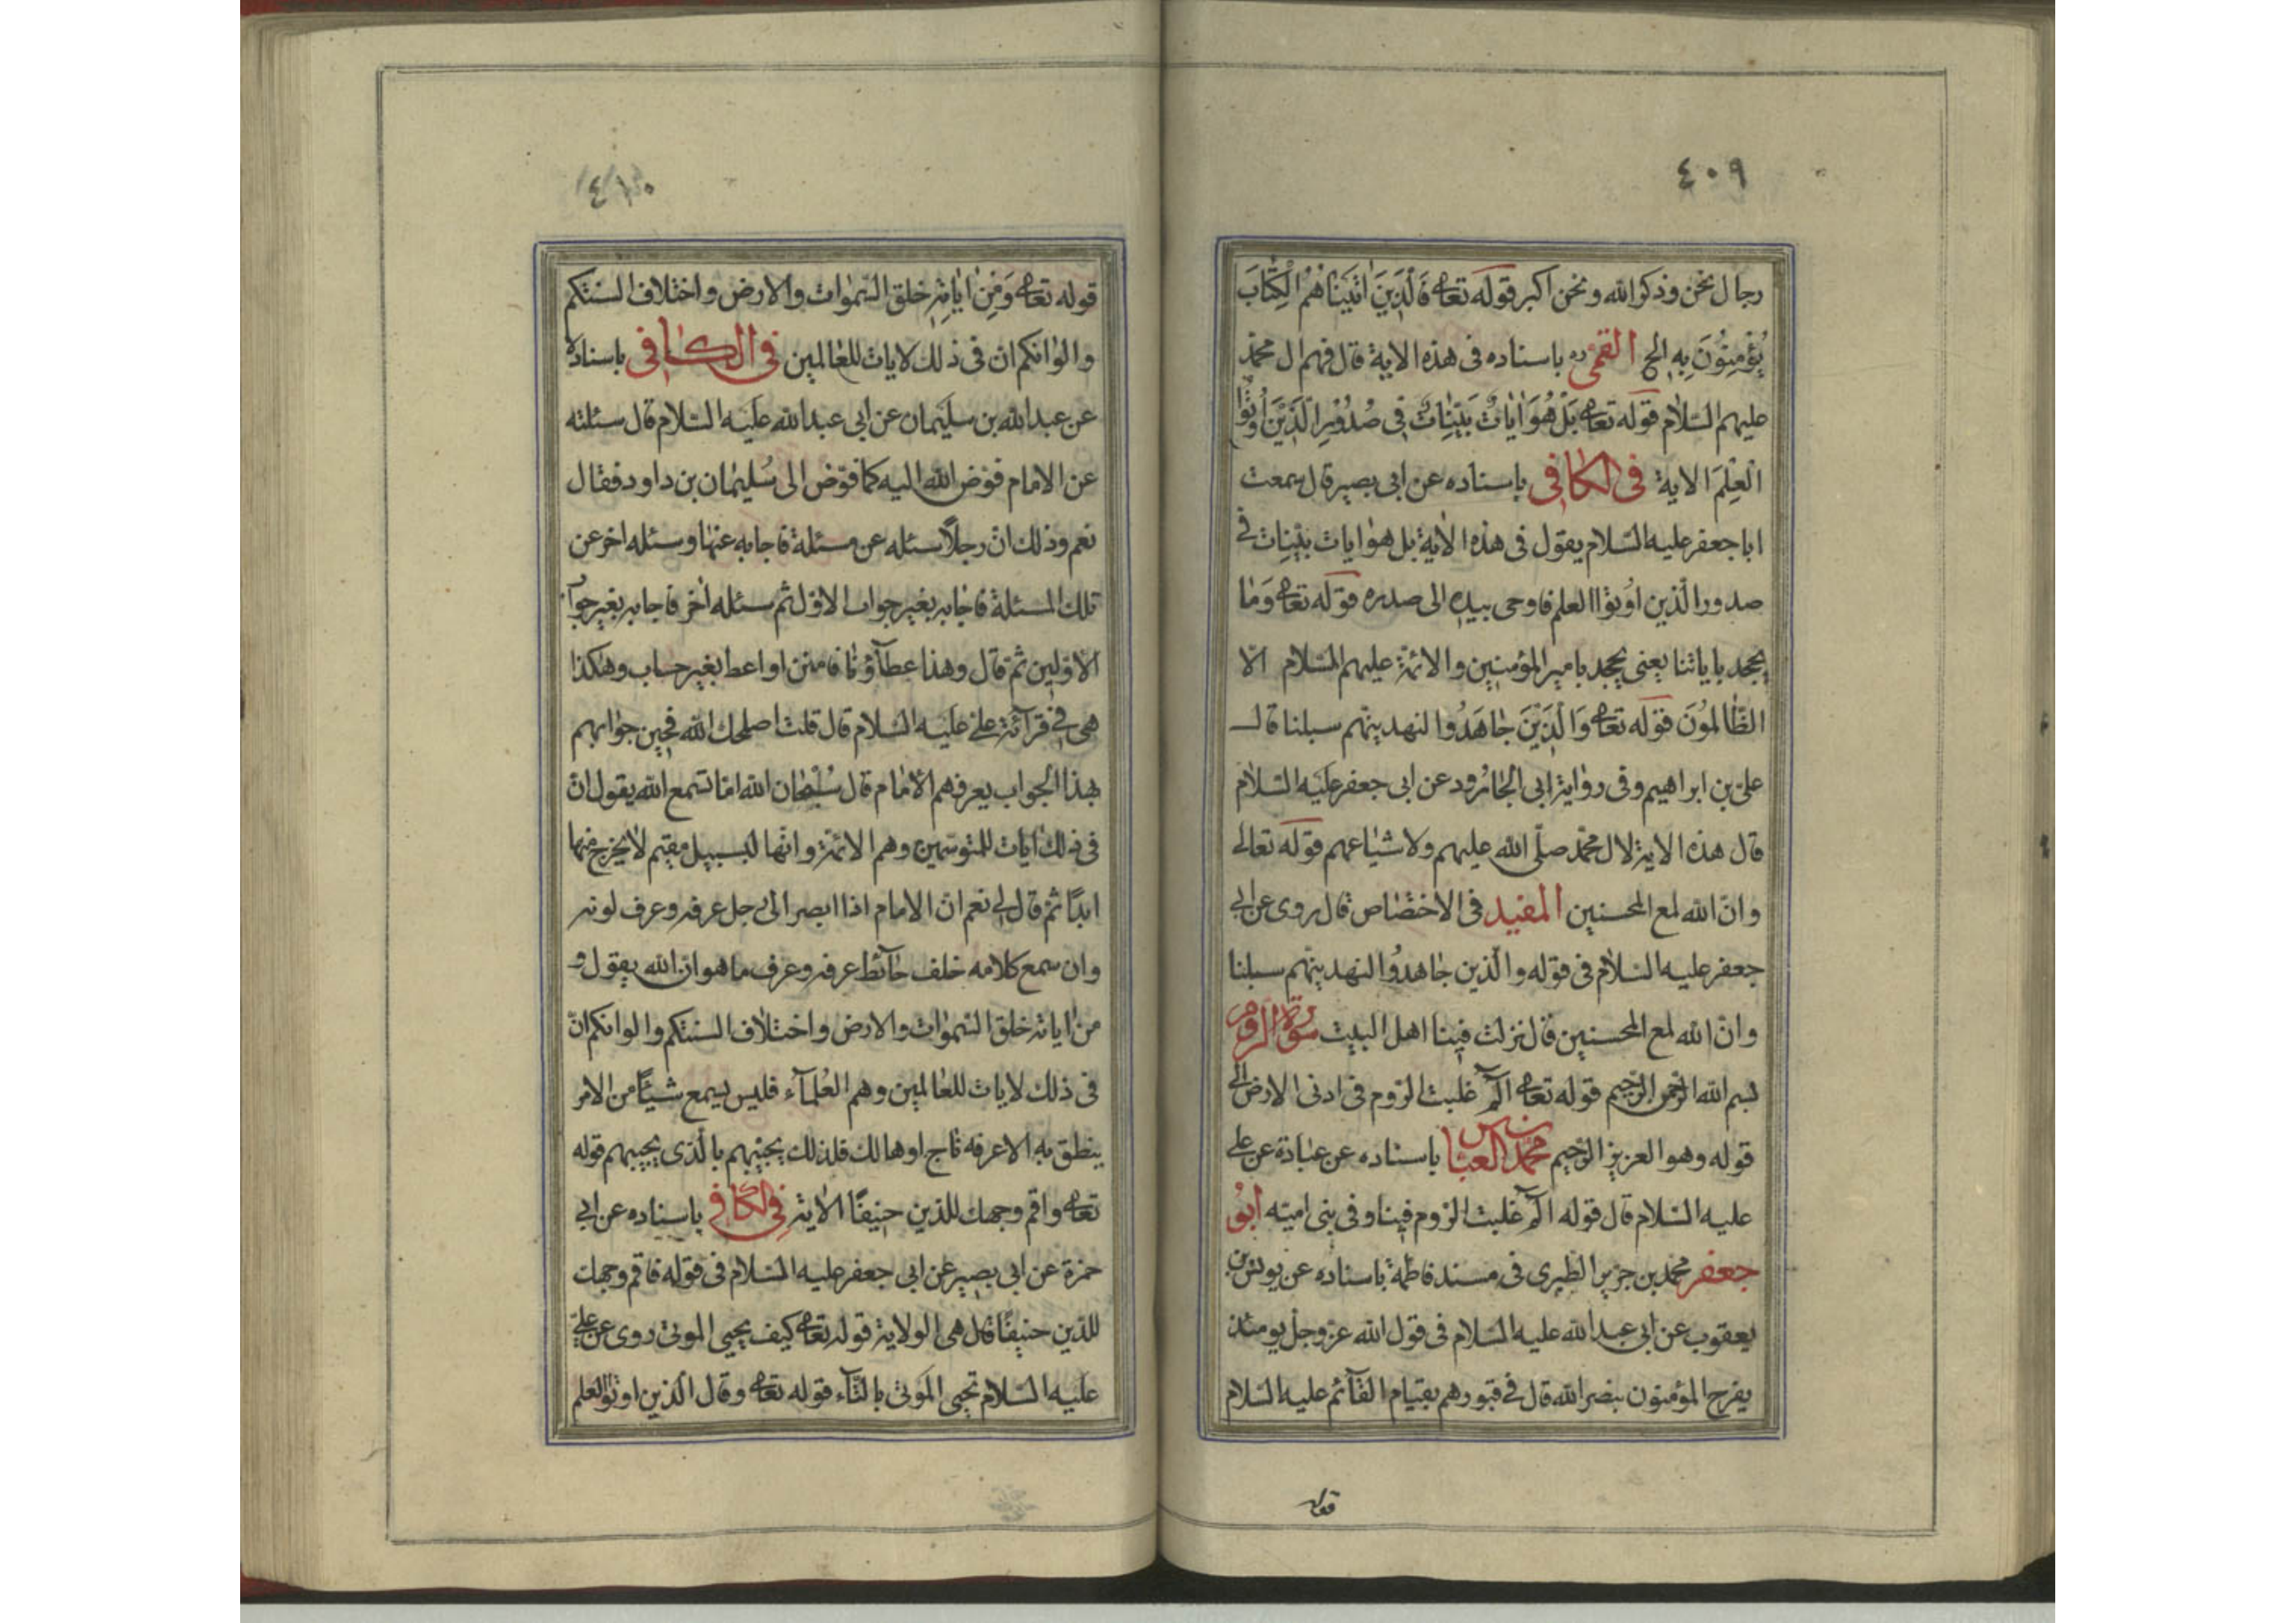 ٤٠٩
رجال نحن وذكر الله ونحن اكبر قوله تعالى فَالَّذِينَ اتَيْنَاهُمُ الْكِتَابَ
يُؤْمِنُونَ بِهِ الخ القمى ره باسناده فى هذه الاية قال فهم ال محمد
عليهم السلام قوله تعالى بَلْ هُوَ ايَاتٌ بَيِّنَاتٌ فِى صُدُورِ الَّذِينَ أُوتُوا
الْعِلْمَ الاية فى الكافى باسناده عن ابى بصير قال سمعت
ابا جعفر عليه السلام يقول فى هذه الاية بل هو ايات بيّنات فى
صدور الّذين اوتوا العلم فاوحى بيده الى صدره قوله تعالى وَمَا
يجحد باياتنا يعنى يجحد بامير المؤمنين والائمّة عليهم السلام الّا
الظَّالمُونَ قوله تعالى وَالَّذِينَ جَاهَدُوا لنهدينّهم سبلنا قال
علىّ بن ابراهيم وفى رواية ابى الجارود عن ابى جعفر عليه السلام
قال هذه الاية لال محمّد صلّى الله عليهم ولاشياعهم قوله تعالى
وانّ الله لمع المحسنين المفيد فى الاختصاص قال روى عن ابى
جعفر عليه السلام فى قوله والّذين جاهدُوا لنهدينّهم سبلنا
وانّ الله لمع المحسنين قال نزلت فينا اهل البيت سورة الروم
بسم الله الرحمن الرحيم قوله تعالى الٓمٓ غلبت الرّوم فى ادنى الارض الى
قوله وهو العزيز الرّحيم محمد العباس باسناده عن عباية عن على
عليه السلام قال قوله الٓمٓ غلبت الروم فينا وفى بنى اميّه أبو
جعفر محمد بن جرير الطبرى فى مسند فاطمة باسناده عن يونس بن
يعقوب عن ابى عبد الله عليه السلام فى قول الله عزّ وجلّ يومئذ
يفرح المؤمنون بنصر الله قال فى قبورهم بقيام القآئم عليه السلام
قوله
٤١٠
قوله تعالى وَمِنْ ايَاتِهِ خلق السّموات والارض واختلاف السنتكم
والوانكم انّ فى ذلك لايات للعالمين فى الكافى باسناده
عن عبد الله بن سليمان عن ابى عبد الله عليه السلام قال سئلته
عن الامام فوّض الله اليه كما فوّض الى سُليمان بن داود فقال
نعم وذلك انّ رجلاً سئله عن مسئلة فاجابه عنها وسئله اخر عن
تلك المسئلة فاجابه بغير جواب الاوّل ثم سئله اخر فاجابه بغير جواب
الاوّلين ثم قال وهذا عطآؤنا فامنن او اعط بغير حساب وهكذا
هى فى قرآئة علىّ عليه السلام قال قلت اصلحك الله فحين جوابهم
بهذا الجواب يعرفهم الامام قال سُبْحان الله اما تسمع الله يقول انّ
فى ذلك ايات للمتوسّمين وهم الائمّة وانّها لبسبيل مقيم لا يخرج منها
ابدًا ثم قال لى نعم انّ الامام اذا ابصر الى رجل عرفه وعرف لونه
وان سمع كلامه خلف حآئط عرفه وعرف ما هو ان الله يقول و
من اياته خلق السّموات والارض واختلاف السنتكم والوانكم انّ
فى ذلك لايات للعالمين وهم العُلمآء فليس يسمع شيئًا من الامر
ينطق به الا عرفه ناج او هالك فلذلك يجيبهم بالّذى يجيبهم قوله
تعالى واقم وجهك للدّين حنيفًا الاية فى الكافى باسناده عن ابى
حمزة عن ابى بصير عن ابى جعفر عليه السلام فى قوله فاقم وجهك
للدّين حنيفًا قال هى الولاية قوله تعالى كيف يحيى الموتى روى عن علىّ
عليه السلام تحيى الموتى بالتّآء قوله تعالى وقال الّذين اوتوا العلم